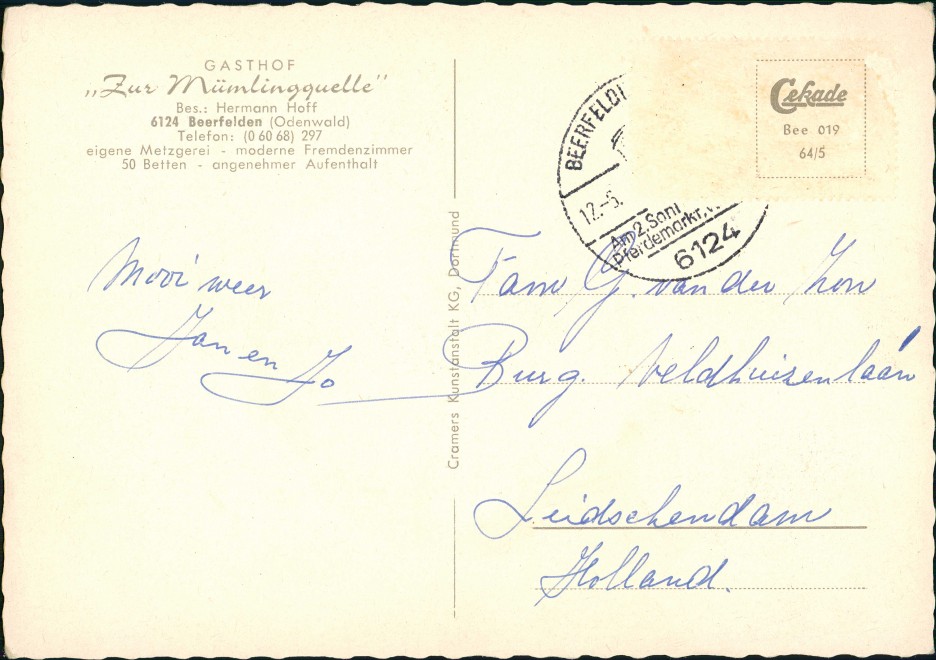 GASTHOF
„Zur Mümlingquelle"
Bes.: Hermann Hoff
6124 Beerfelden (Odenwald)
Telefon: (0 60 68) 297
eigene Metzgerei - moderne Fremdenzimmer
50 Betten - angenehmer Aufenthalt
Mooi weer
Jan en Jo
Cramers Kunstanstalt KG, Dortmund
BEERFELD
12.-6.
Am 2. Sonn
Pferdemarkt
6124
Cekade
Bee 019
64/5
Fam G. van der Zon
Burg. Veldhuizenlaan
Leidschendam
Holland.